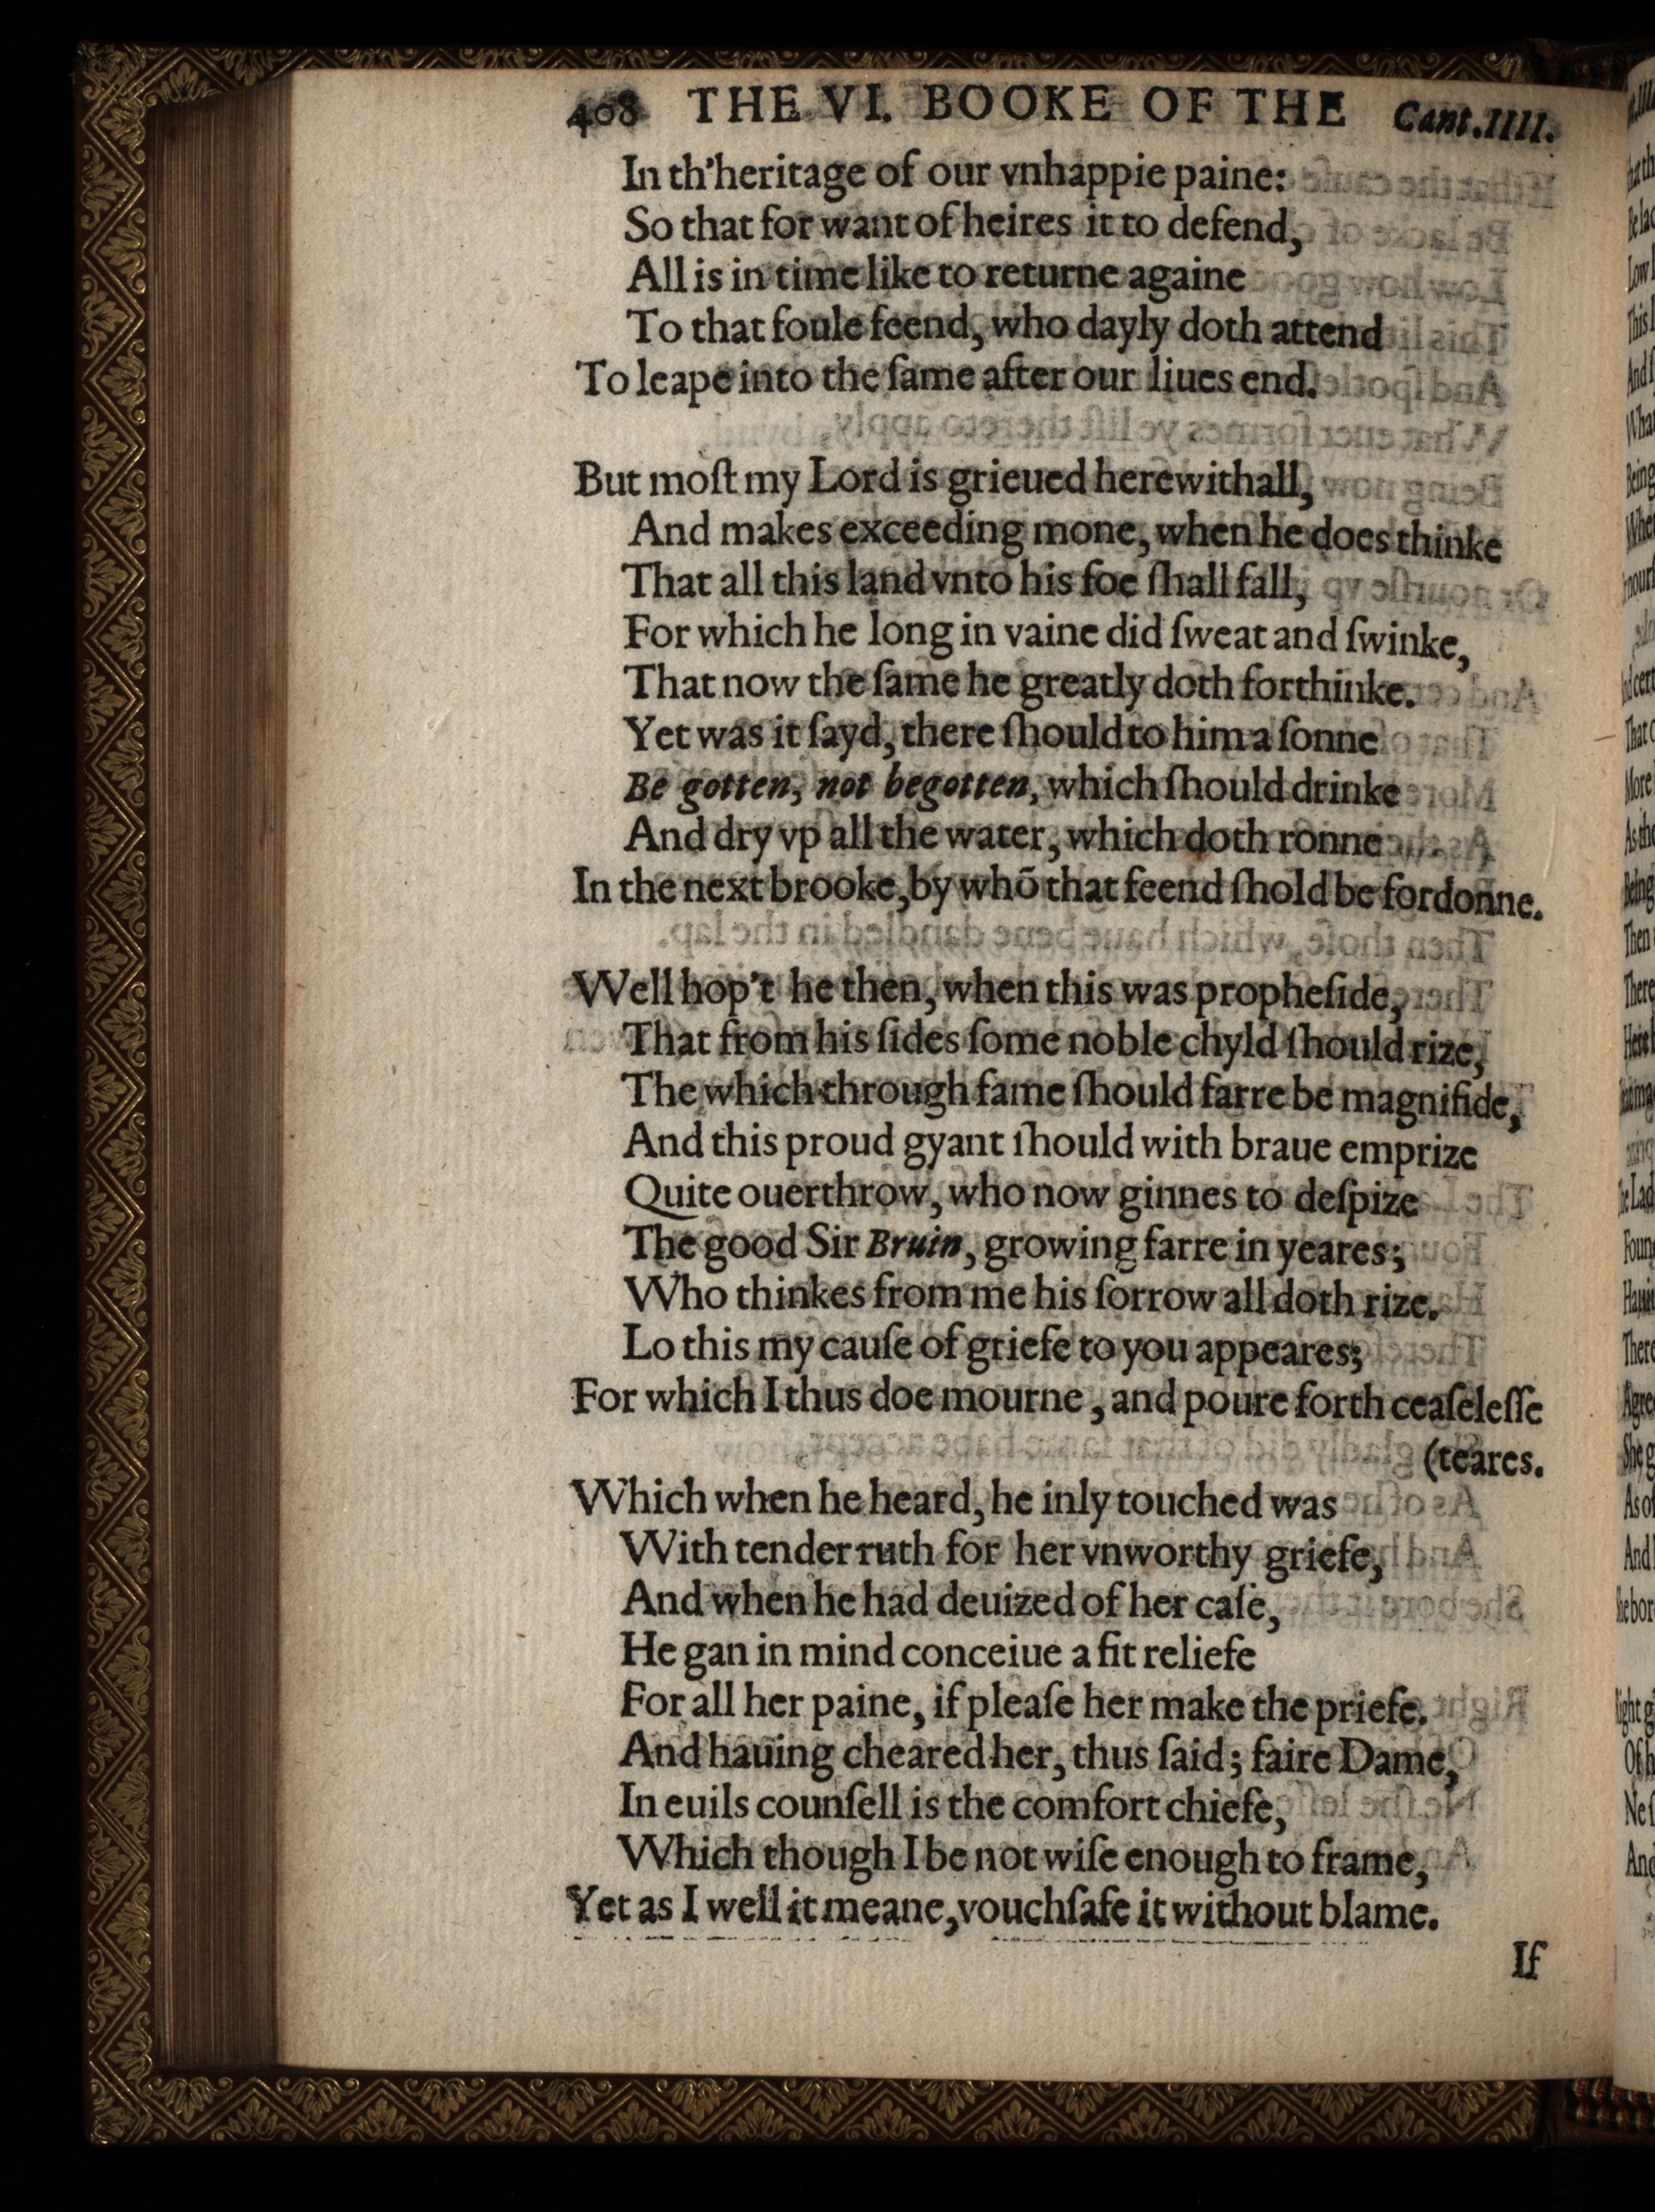 408 THE VI. BOOKE OF THE Cant.IIII.
In th'heritage of our vnhappie paine:
So that for want of heires it to defend,
All is in time like to returne againe
To that foule feend, who dayly doth attend
To leape into the ſame after our liues end.
But moſt my Lord is grieued herewithall,
And makes exceeding mone, when he does thinke
That all this land vnto his foe ſhall fall,
For which he long in vaine did ſweat and ſwinke,
That now the ſame he greatly doth forthinke.
Yet was it ſayd, there ſhould to him a ſonne
Be gotten, not begotten, which ſhould drinke
And dry vp all the water, which doth ronne
In the next brooke, by whō that feend ſhold be fordonne.
Well hop't he then, when this was propheſide,
That from his ſides ſome noble chyld ſhould rize,
The which through fame ſhould farre be magnifide,
And this proud gyant ſhould with braue emprize
Quite ouerthrow, who now ginnes to deſpize
The good Sir Bruin, growing farre in yeares;
Who thinkes from me his ſorrow all doth rize.
Lo this my cauſe of griefe to you appeares;
For which I thus doe mourne, and poure forth ceaſeleſſe
(teares.
Which when he heard, he inly touched was
With tender ruth for her vnworthy griefe,
And when he had deuized of her caſe,
He gan in mind conceiue a fit reliefe
For all her paine, if pleaſe her make the priefe.
And hauing cheared her, thus ſaid; faire Dame,
In euils counſell is the comfort chiefe,
Which though I be not wiſe enough to frame,
Yet as I well it meane, vouchſafe it without blame.
If